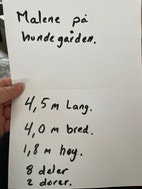 Malene på
hundegården.
4,5 m lang.
4,0 m bred.
1,8 m høy.
8 deler
2 dører.